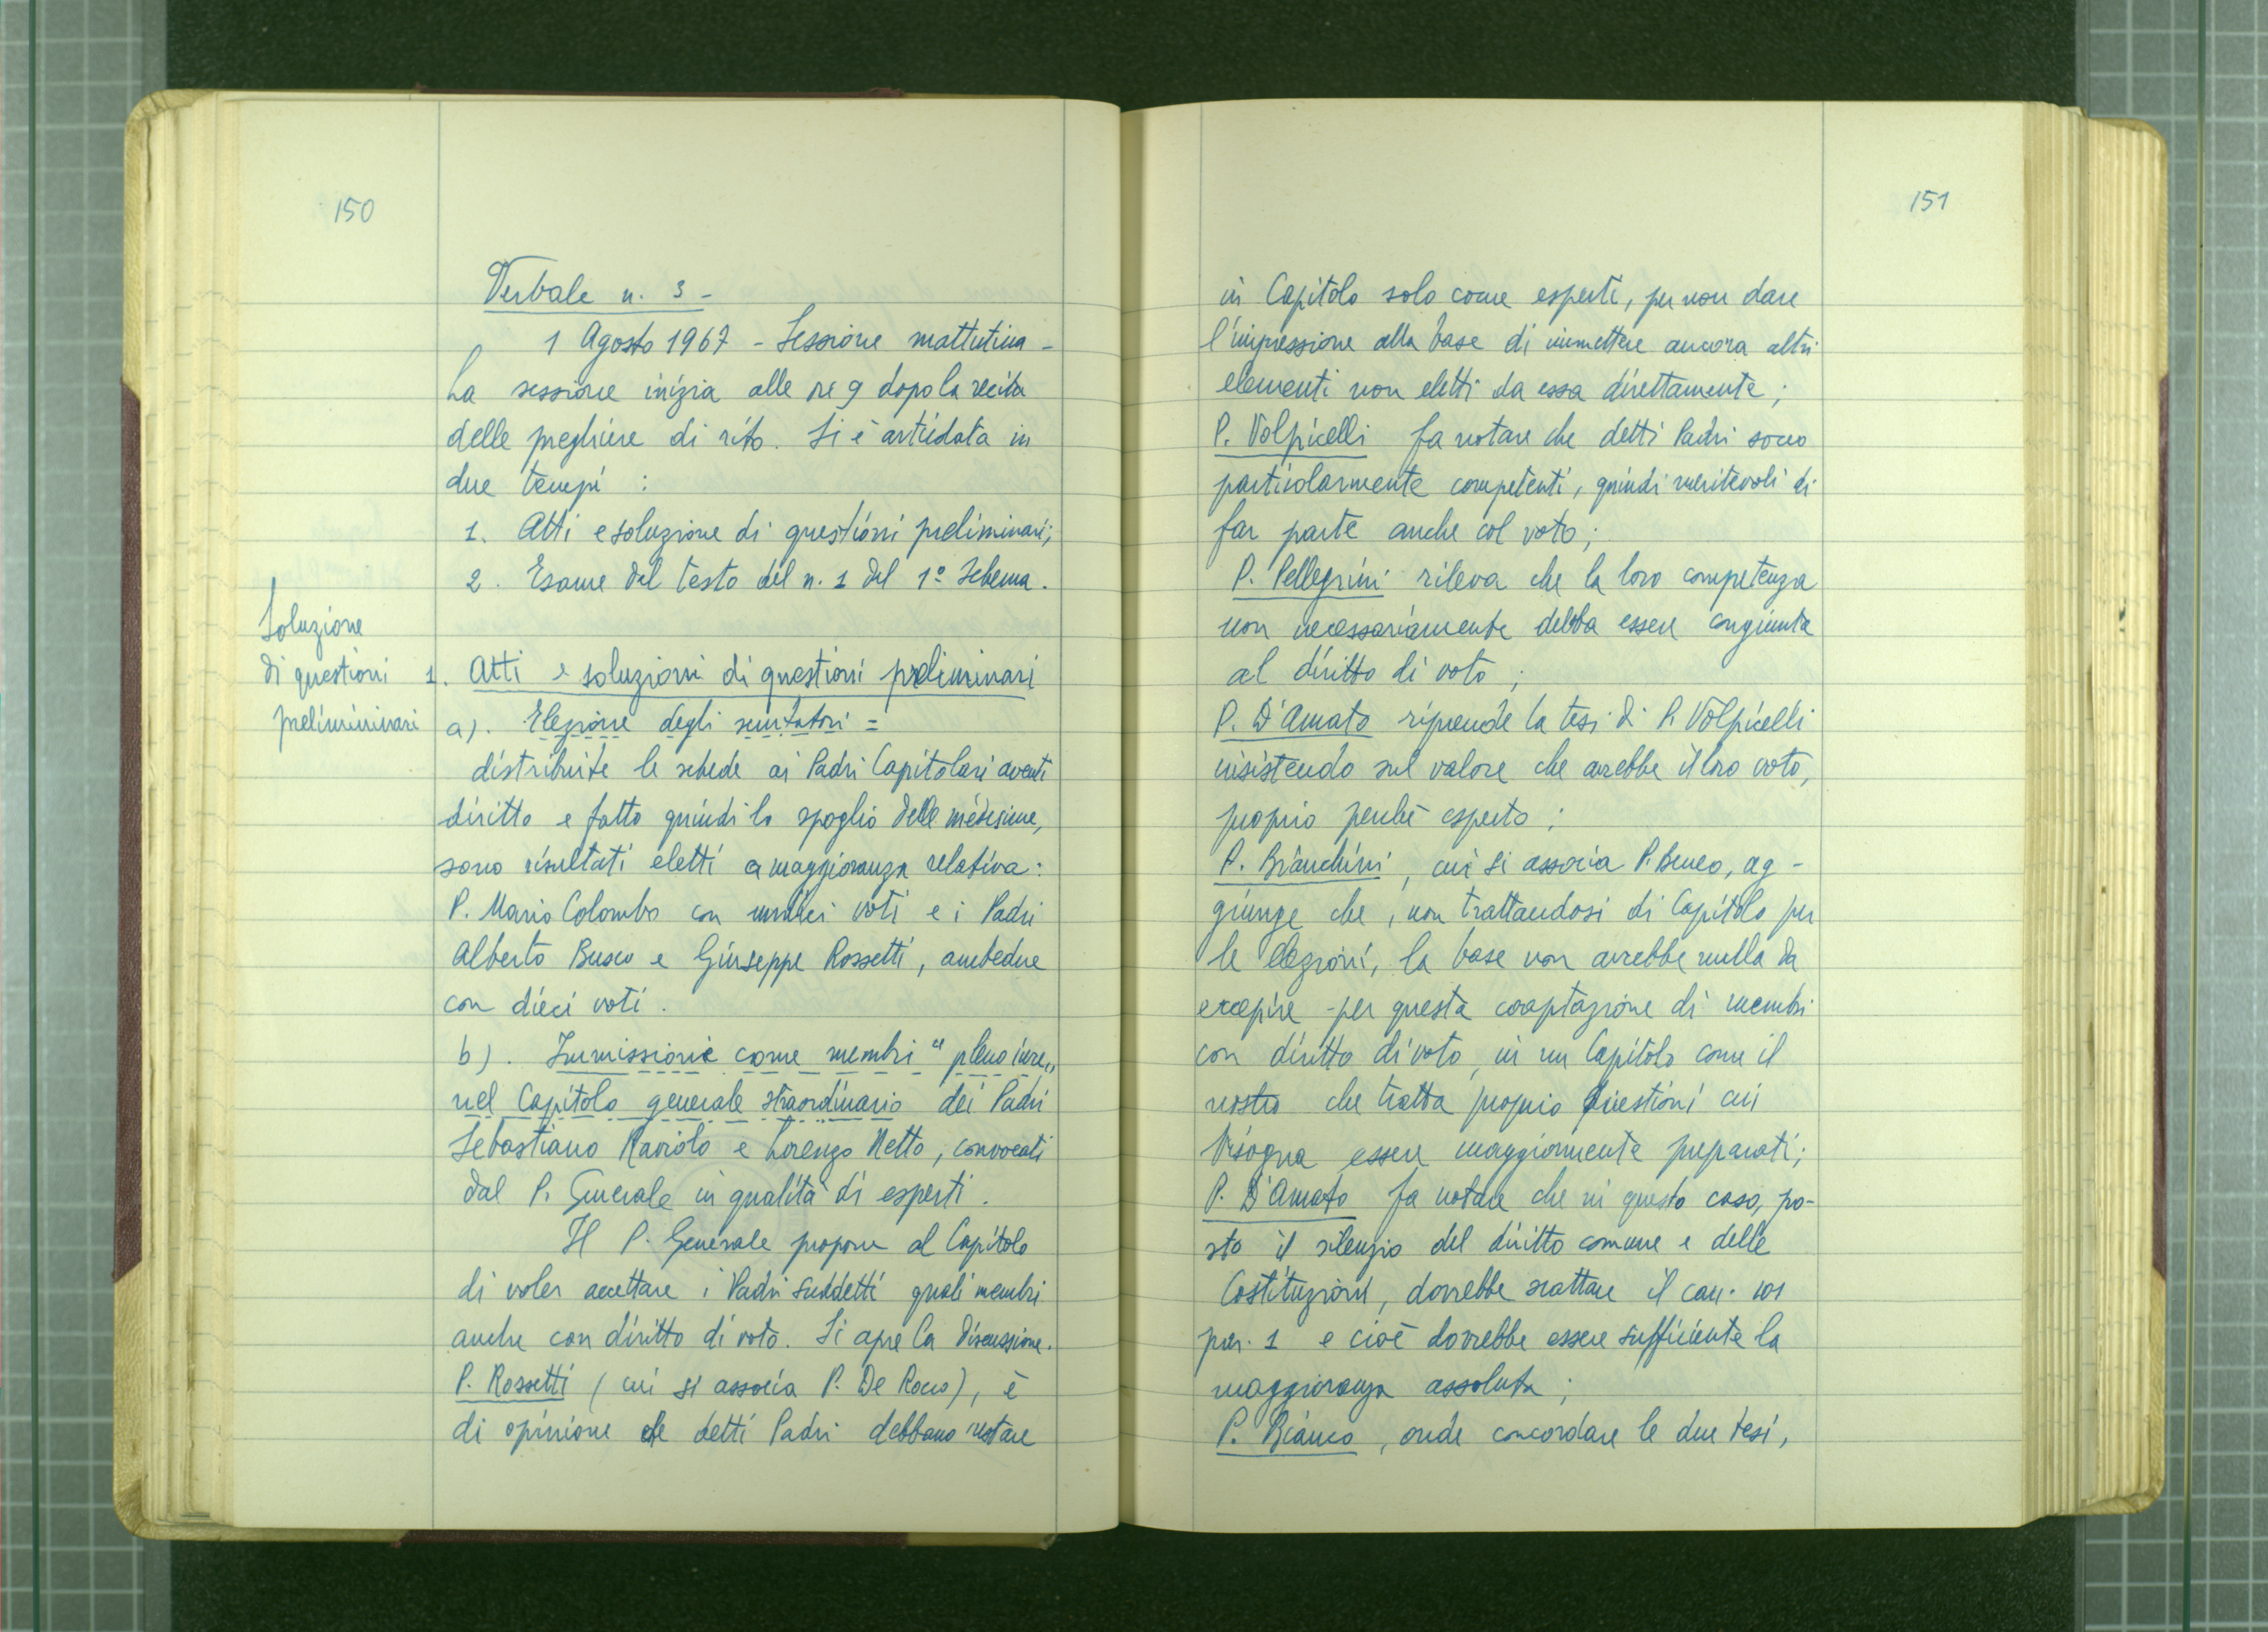 150
Verbale n. 3 -
1 Agosto 1967 - Sessione mattutina -
La sessione inizia alle ore 9 dopo la recita
delle preghiere di rito. Si è articolata in
due tempi :
1. Atti e soluzione di questioni preliminari;
2. Esame del testo del n. 1 del 1º Schema.
Soluzione
di questioni
preliminari
1. Atti e soluzioni di questioni preliminari
a). Elezione degli scrutatori =
distribuite le schede ai Padri Capitolari aventi
diritto e fatto quindi lo spoglio delle medesime,
sono risultati eletti a maggioranza relativa:
P. Mario Colombo con undici voti e i Padri
Alberto Busco e Giuseppe Rossetti, ambedue
con dieci voti.
b). Immissione come membri "pleno iure„
nel Capitolo generale straordinario dei Padri
Sebastiano Raviolo e Lorenzo Netto, convocati
dal P. Generale in qualità di esperti.
Il P. Generale propone al Capitolo
di voler accettare i Padri suddetti quali membri
anche con diritto di voto. Si apre la discussione.
P. Rossetti (cui si associa P. De Rocco), è
di opinione che detti Padri debbano restare
151
in Capitolo solo come esperti, per non dare
l'impressione alla base di immettere ancora altri
elementi non eletti da essa direttamente;
P. Volpicelli fa notare che detti Padri sono
particolarmente competenti, quindi meritevoli di
far parte anche col voto;
P. Pellegrini rileva che la loro competenza
non necessariamente debba essere congiunta
al diritto di voto ;
P. D'Amato riprende la tesi di P. Volpicelli
insistendo sul valore che avrebbe il loro voto,
proprio perchè esperto ;
P. Bianchini, cui si associa P. Beneo, ag-
giunge che, non trattandosi di Capitolo per
le elezioni, la base non avrebbe nulla da
eccepire per questa cooptazione di membri
con diritto di voto, in un Capitolo come il
nostro che tratta proprio questioni cui
bisogna essere maggiormente preparati;
P. D'Amato fa notare che in questo caso, po-
sto il silenzio del diritto comune e delle
Costituzioni, dovrebbe scattare il can. 101
par. 1 e cioè dovrebbe essere sufficiente la
maggioranza assoluta ;
P. Bianco, onde concordare le due tesi,